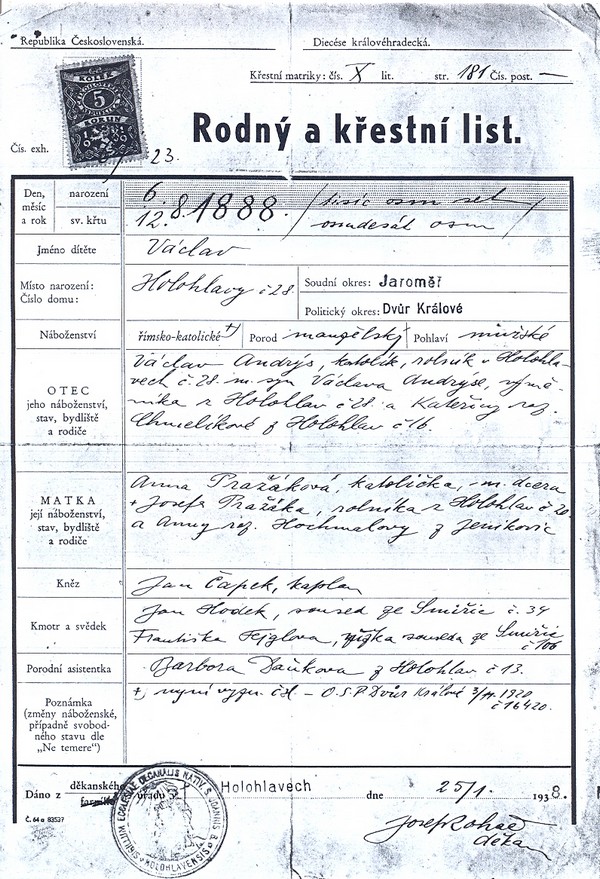 Republika Československá. Diecése královéhradecká.
Křestní matriky: čís. X lit. str. 181 Čís. post. —
KOLEK
5
KORUN
Rodný a křestní list.
Čís. exh. 23.
Den, měsíc a rok
narození 6. 8. 1888. / tisíc osm set
sv. křtu 12. osmdesát osm /
Jméno dítěte Václav
Místo narození: Číslo domu: Holohlavy č 28.
Soudní okres: Jaroměř
Politický okres: Dvůr Králové
Náboženství římsko-katolické +) Porod manželský Pohlaví mužské
OTEC
jeho náboženství,
stav, bydliště
a rodiče
Václav Andrýs, katolík, rolník v Holohla-
vech č. 28. m. syn Václava Andrýse, výmě-
níka z Holohlav č 28 a Kateřiny roz.
Chmelíkové z Holohlav č 16.
MATKA
její náboženství,
stav, bydliště
a rodiče
Anna Pražáková, katolička, m. dcera
+ Josefa Pražáka, rolníka z Holohlav č 20
a Anny roz. Hochmalovy z Jeníkovic
Kněz Jan Čapek, kaplan
Kmotr a svědek
Jan Hodek, soused ze Smiřic č. 34
Františka Fejglova, souseda ze Smiřic
č 106
Porodní asistentka Barbora Daňkova z Holohlav č 13.
Poznámka
(změny náboženské,
případně svobod-
ného stavu dle
„Ne temere")
+) nyní vyzn. čsl. – O.S.P. Dvůr Králové 3/11. 1920
č 16420.
Dáno z děkanského úřadu v Holohlavech dne 25/1. 1938.
farního
SIGILLUM ECCLESIAE DECANALIS NATIV. S. JOANNIS B. HOLOHLAVENSIS
Č. 64 a 83537
děkan